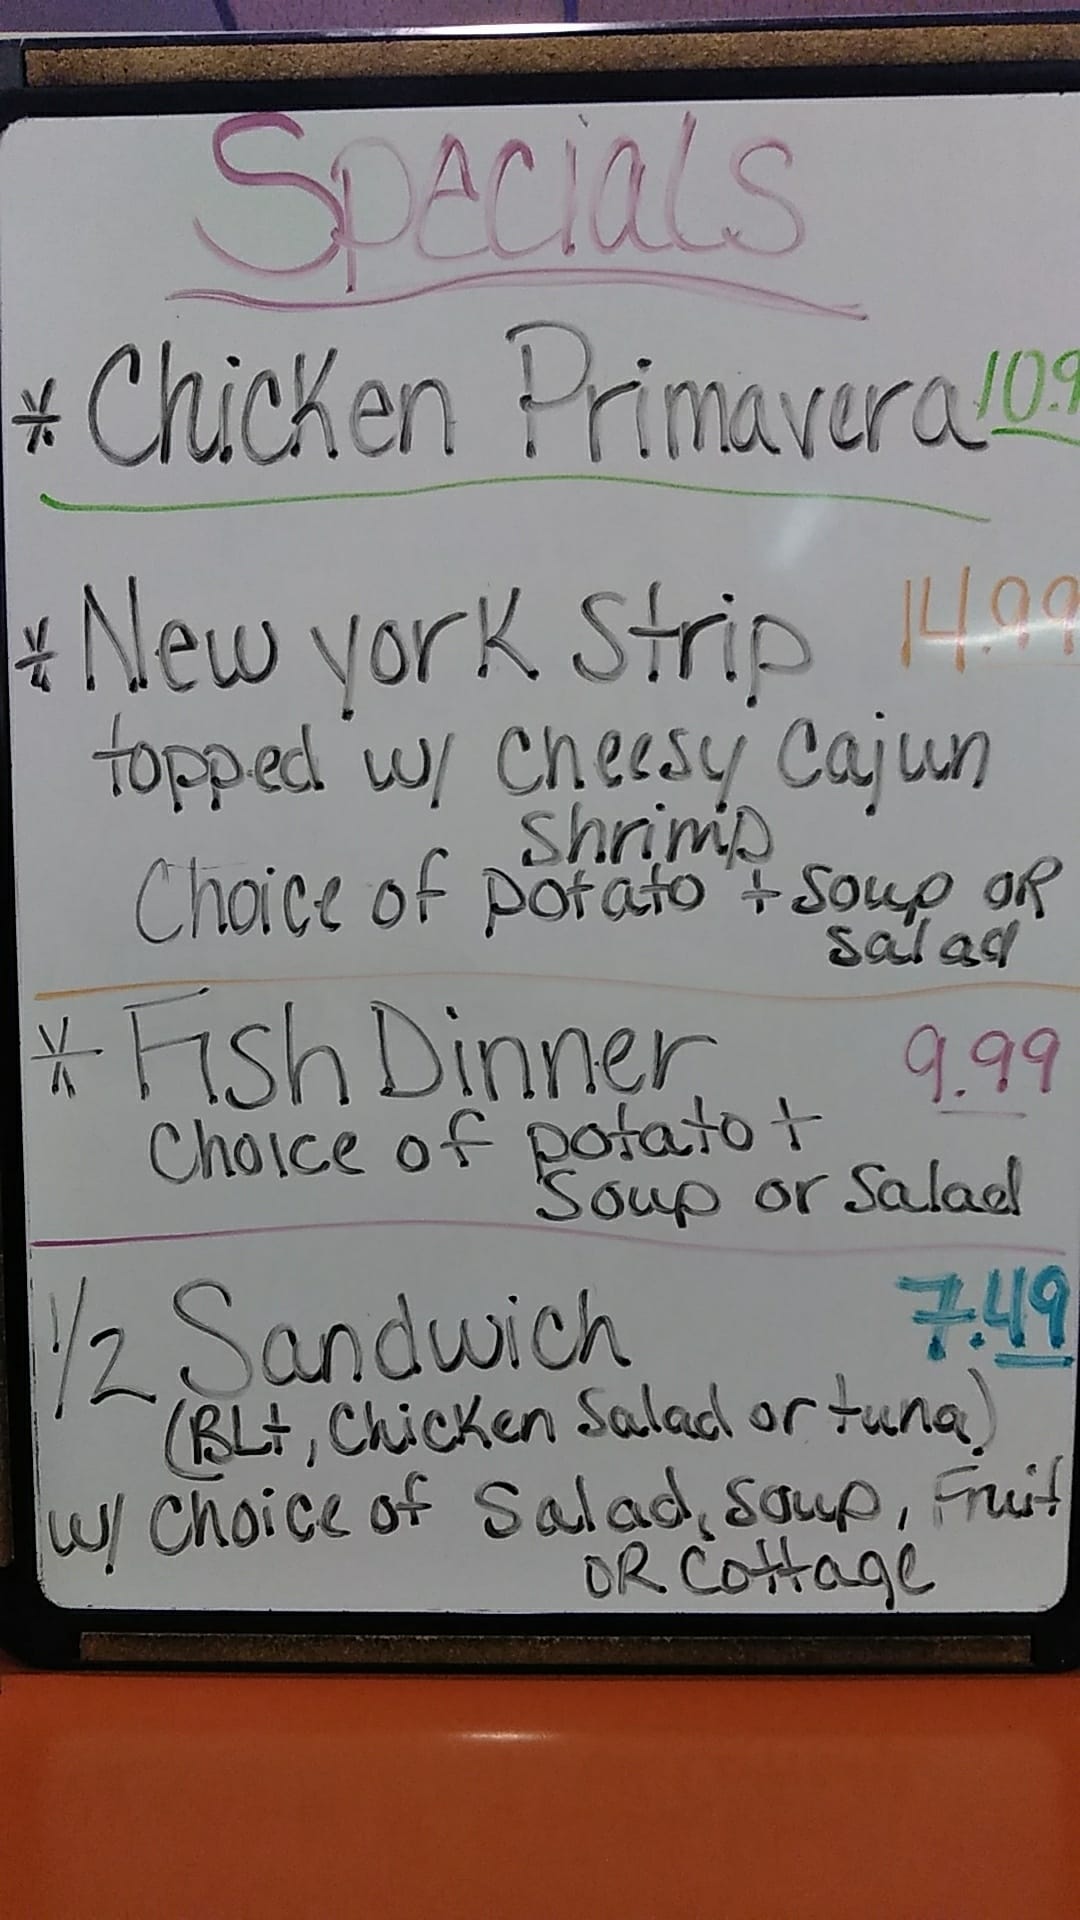 Specials
* Chicken Primavera 10.9
* New york Strip 14.99
topped w/ Cheesy Cajun
Shrimp
Choice of potato + Soup OR
salad
* Fish Dinner 9.99
Choice of potato +
Soup or Salad
1/2 Sandwich 7.49
(BLt, Chicken Salad or tuna)
w/ Choice of Salad, Soup, Fruit
OR Cottage